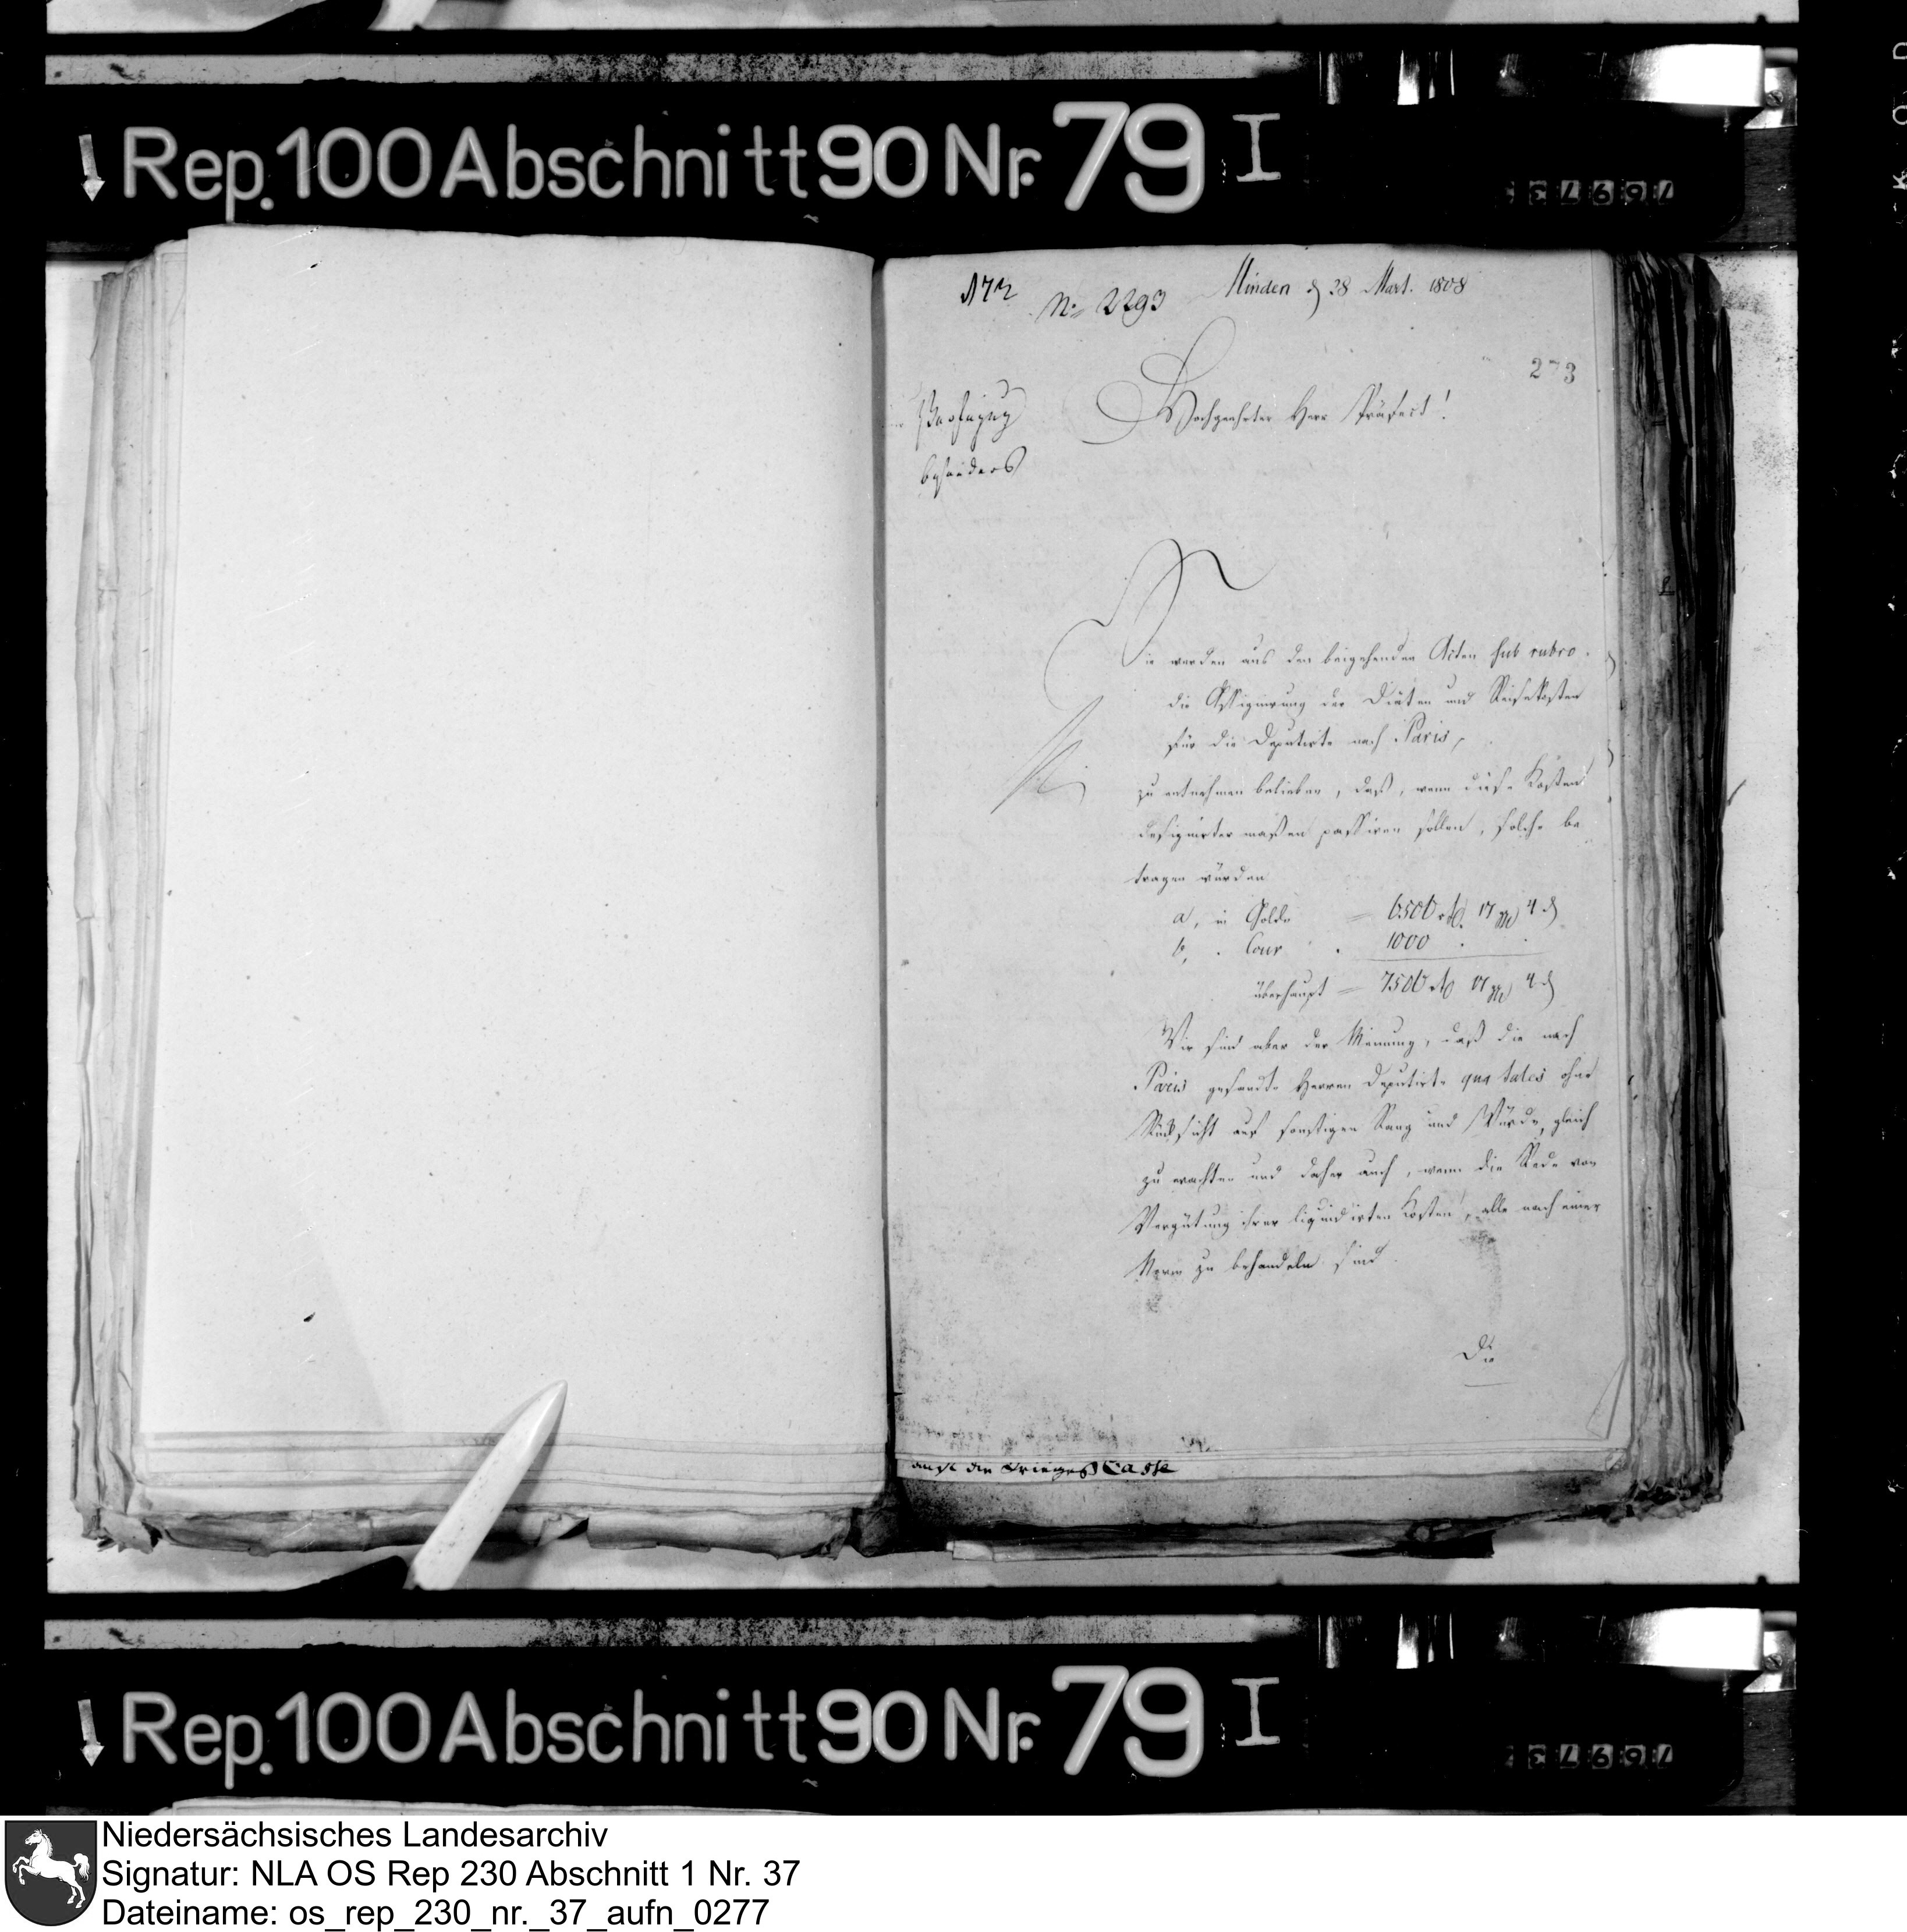 Rep. 100 Abschnitt 90 Nr. 79 I
76973
172
No. 2293
Minden d 28 Mart. 1808
273
Verfügung
besonders
Hochgeehrter Herr Präfect!
Sie werden aus den beigehenden Acten sub rubro.
die Assignirung der Diäten und Reisekosten
für die Deputirte nach Paris,
zu entnehmen belieben, daß, wenn diese Kosten
designirter maßen passiren sollen, solche be
tragen würden
a, in Golde = 6506 rt. 17 ggr 4 d
b, . Cour . 1000 . .
überhaupt = 7506 rt 17 ggr 4 d
Wir sind aber der Meinung, daß die nach
Paris gesandte Herren Deputirte qua tales ohne
Rücksicht auf sonstigen Rang und Würde, gleich
zu erachten und daher auch, wenn die Rede von
Vergütung ihrer liquidirten Kosten, alle nach einer
Norm zu behandeln sind.
Die
die Krieges Casse
Rep. 100 Abschnitt 90 Nr. 79 I
76973
Niedersächsisches Landesarchiv
Signatur: NLA OS Rep 230 Abschnitt 1 Nr. 37
Dateiname: os_rep_230_nr._37_aufn_0277